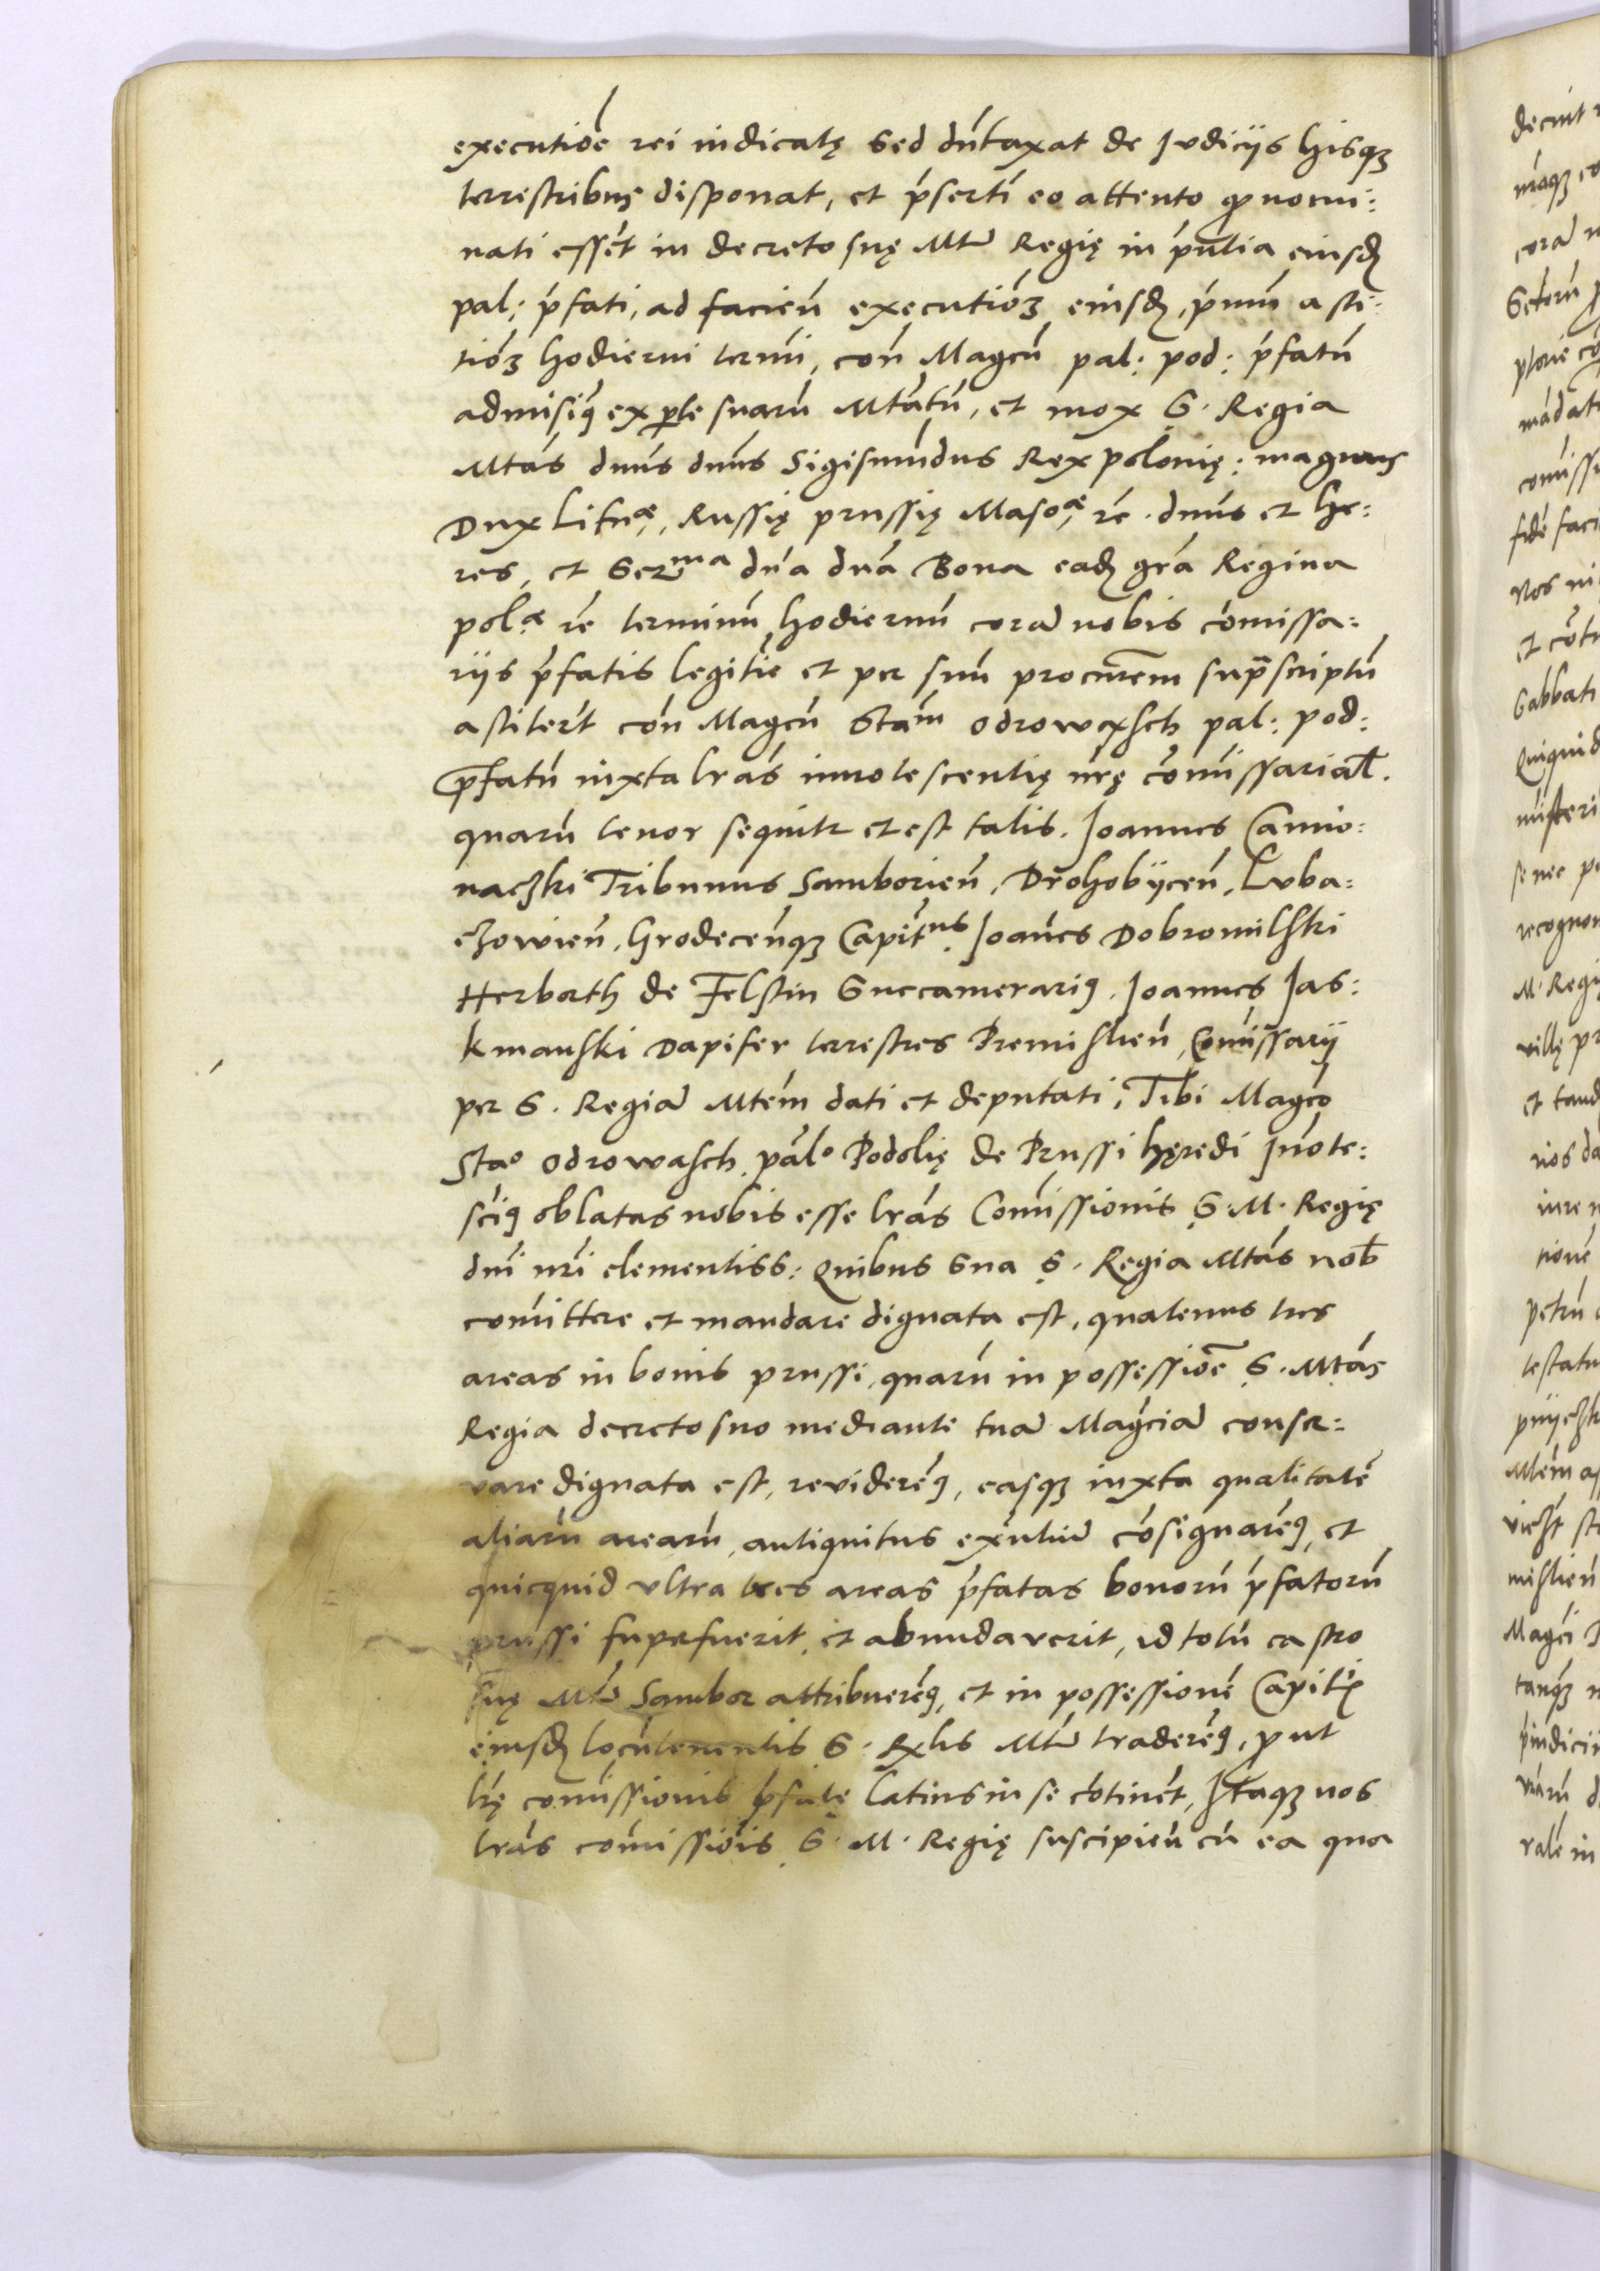 executiōe rei iudicatę sed dūtaxat de Judiciis hisqȝ
terrestribus disponat, et p̄serti eo attento qȝ nomi:
nati essēt in decreto suę Mtis Regię in p̄ntia eiusd
pal: p̄fati, ad facien̄ executiōȝ eiusd, p̄mū asti:
tiōȝ hodierni termi, con̄ Magcū pal: pod: p̄fatū
admisim9 ex ꝑte suarū Mtātū, et mox S. Regia
Mtās dnūs dnūs Sigismūdus Rex polonię: magnus
Dux Litnæ, Russię prussię Masoæ, rē. dnūs et he:
res, et Serma dn̄a dnā Bona ead grā Regina
polæ rē terminū hodiernū corā nobis cōmissa:
riis p̄fatis legitīe et per suū procurem suprascriptū
astitert con̄ Magcū Stam̄ odrowąsch pal: pod:
prefatū iuxta lrās innotescentię nrę cōmissarial.
quarū tenor sequitr et est talis. Joannes Camio:
naczki Tribunus Samborien̄, Drohobycen̄, Luba:
chowien̄, Grodecen̄qȝ Capitnus, Joan̄es Dobromilski
Herborth de Felstin Succamerari9. Joannes Jas:
kmanski Dapifer terrestres Premislien̄, Comissarij
per S. Regiā Mtem̄ dati et deputati, Tibi Magco
Stao odrowasch palo Podolię de Prussi hęredi Jnote:
scim9 oblatas nobis esse lrās Comissionis S. M. Regię
dnī nrī clementiss: Quibus Sua S. Regia Mtās nob
comittere et mandare dignata est, quatenus tres
areas in bonis prussi, quarū in possessiōe S. Mtās
Regia decreto suo mediante tuā Magciā conser:
vare dignata est, reviderem9, easqȝ iuxta qualitatē
aliarū arearū, antiquitus exn̄tiū cōsignarem9, et
quicquid ultra tres areas p̄fatas bonorū p̄fatorū
prussi supefuerit et abundaverit, id totū castro
suę Mtis Sambor attribuerem9, et in possessionē Capit
eiusd locūtenentis S. Rxlis Mtis traderem9, prut
lrę comissionis p̄fatę latius in se cōtinēt, Jtaqȝ nos
lrās comissiōis S. M. Regię suscipien̄ cū ea qua